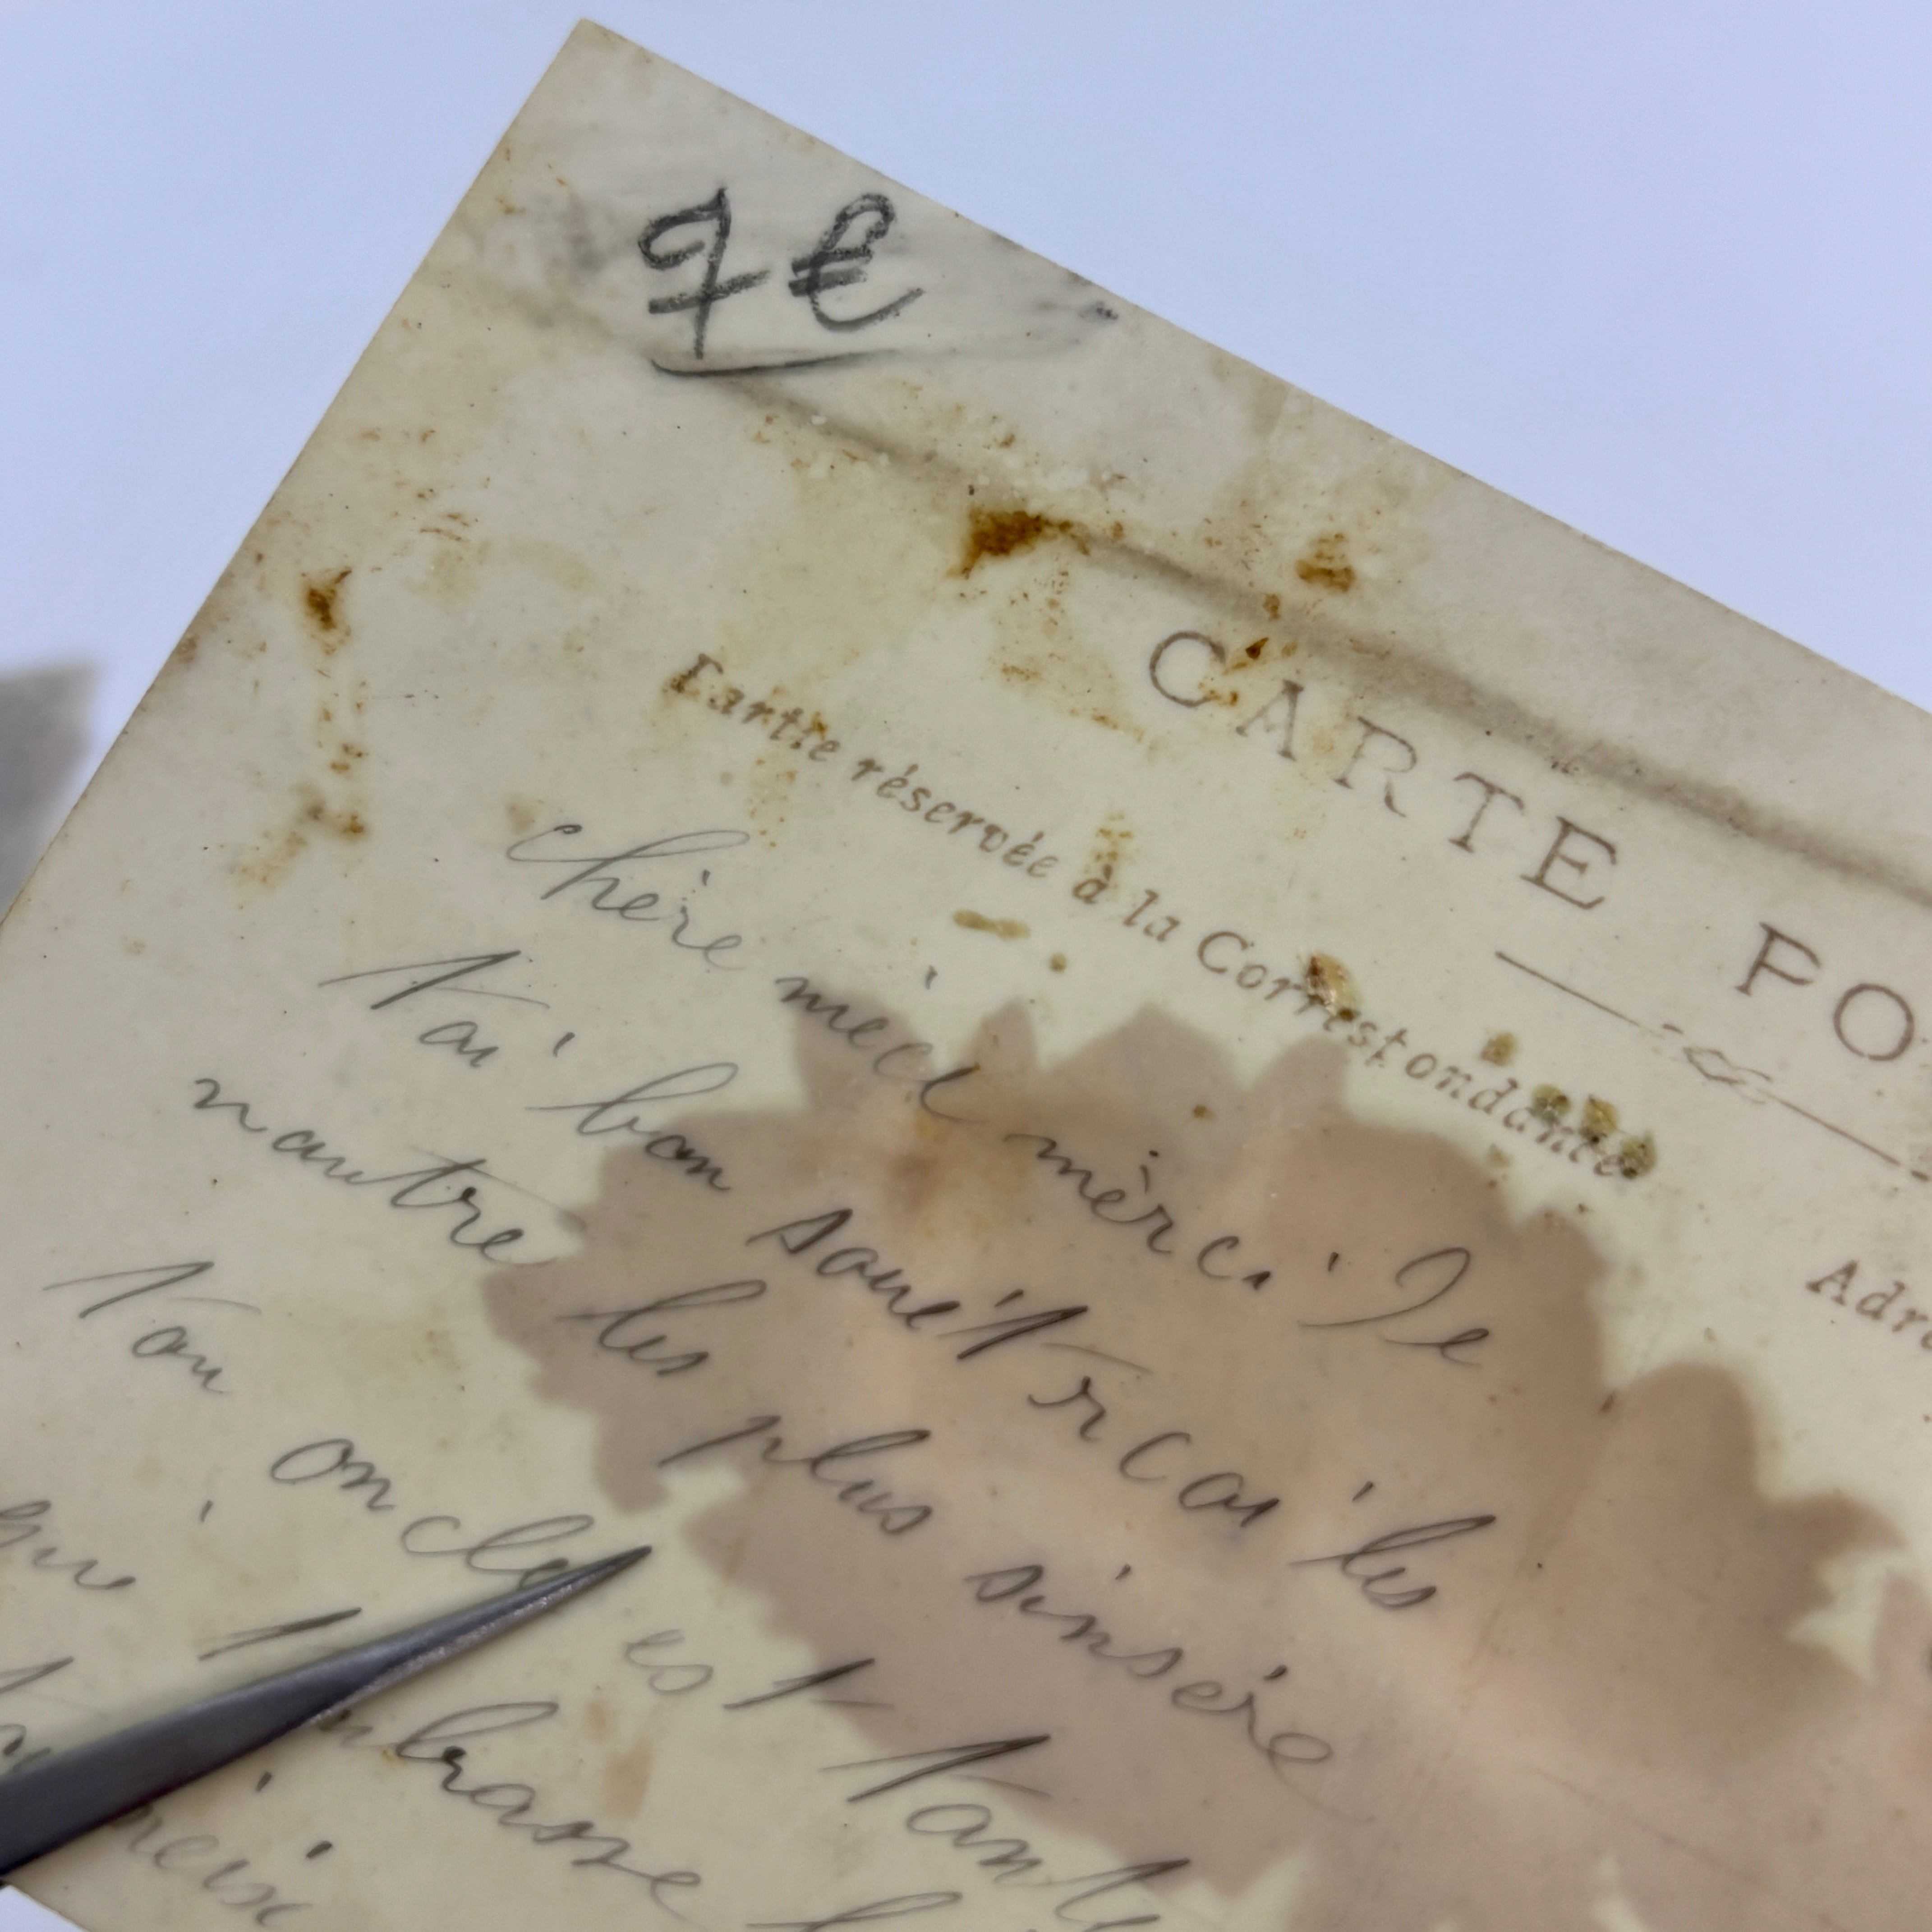 7 €
CARTE PO
Partie réservée à la Correspondance
Adre
chère niece mèrci De
Tai bon souétrcai les
nautre les plus sinsère
Ton oncle es tante
qui
t embrasse